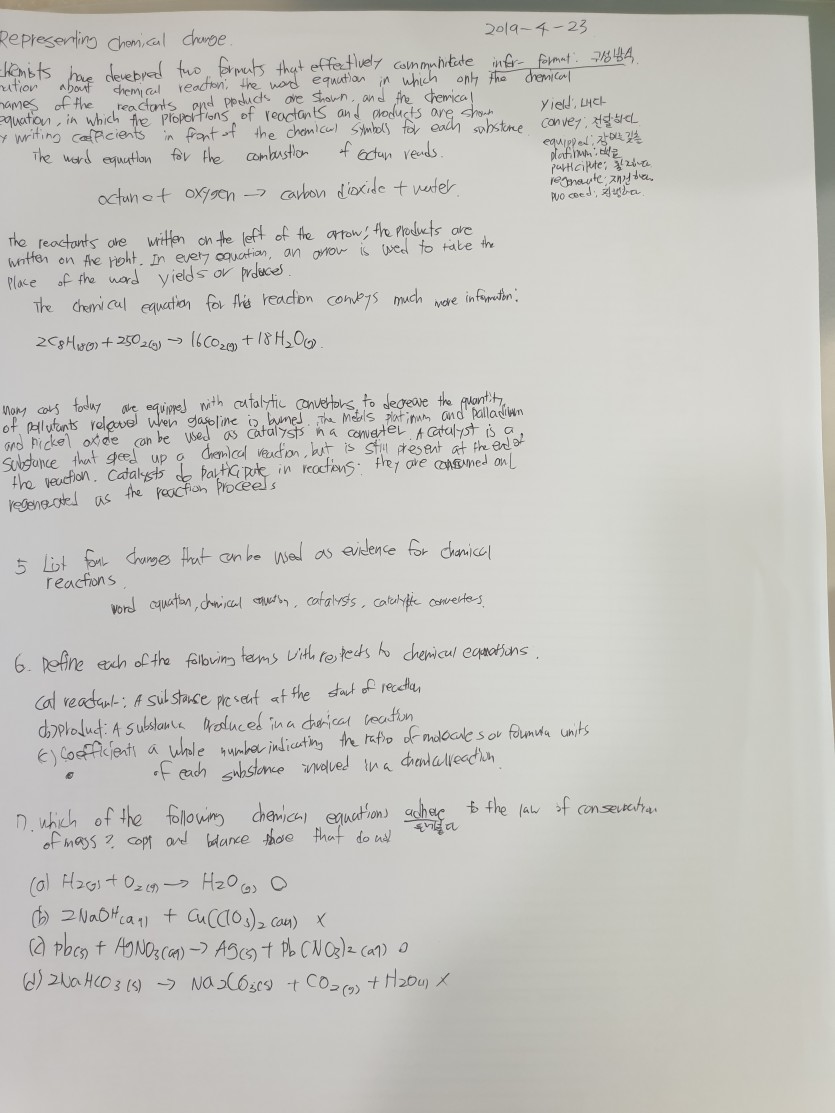 Representing chemical change.
2019-4-23
chemists have developed two formuts that effectively communitate infor- format: 구성방식.
mation about chemical reaction; the word equation in which only the chemical
names of the reactants and products are shown, and the chemical
equation, in which the proportions of reactants and products are shown
y writing coefficients in front of the chemical symbols for each substance
The word equation for the combustion of octan reads.
octane + oxygen → carbon dioxide + water.
yield: 내다
convey: 전달하다
equipped: 장비를 갖춘
platinum: 백금
participate:
regenerate: 재생하다
proceed: 진행하다
The reactants are written on the left of the arrow; the products are
written on the right. In every equation, an arrow is used to take the
place of the word yields or produces.
The chemical equation for this reaction conveys much more information:
2C8H18(g) + 25O2(g) → 16CO2(g) + 18H2O(g).
Many cars today are equipped with catalytic convertors, to decrease the quantity
of pollutants released when gasoline is burned. The metals platinum and palladium
and nickel oxide can be used as catalysts in a converter. A catalyst is a
substance that speed up a chemical reaction, but is still present at the end of
the reaction. Catalysts do participate in reactions: they are consumed and
regenerated as the reaction proceeds
5 List four changes that can be used as evidence for chemical
reactions.
word equation, chemical equation, catalysts, catalytic converters.
6. Define each of the following terms with respects to chemical equations.
(a) reactant: A substance present at the start of reaction
(b) product: A substance produced in a chemical reaction
(c) coefficient: a whole number indicating the ratio of molecules or formula units
of each substance involved in a chemical reaction.
7. which of the following chemical equations adhere to the law of conservation
of mass? copy and balance those that do not
(a) H2(g) + O2(g) → H2O(g) O
(b) 2NaOH(aq) + Cu(ClO3)2(aq) X
(c) Pb(s) + AgNO3(aq) → Ag(s) + Pb(NO3)2(aq) O
(d) 2NaHCO3(s) → Na2CO3(s) + CO2(g) + H2O(l) X